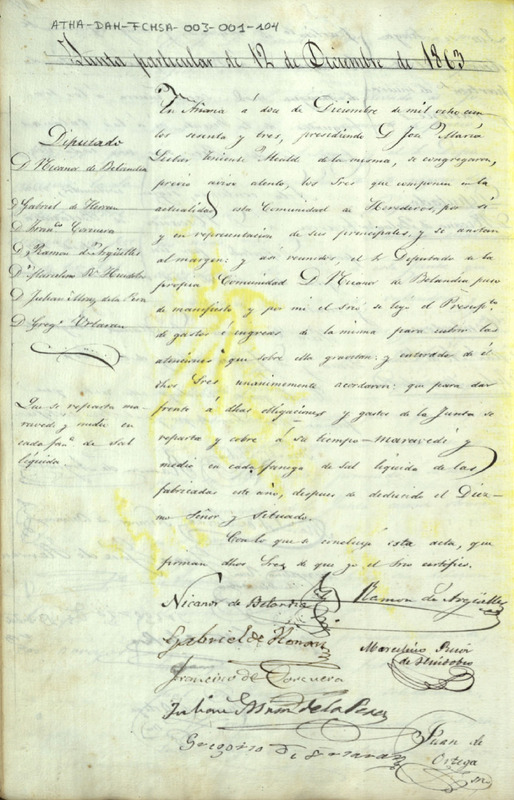 ATHA-DAH-FCHSA-003-001-104
Junta particular de 12 de Diciembre de 1863
En Añana á doce de Diciembre de mil ocho cien
tos sesenta y tres, presidiendo D José María
Teniente Alcalde de la misma, se congregaron,
previo aviso atento, los Sres que componen en la
actualidad esta Comunidad de Herederos, por sí
y en representacion de sus principales, y se anotan
al margen; y así reunidos el Sr Diputado de la
propia Comunidad D Nicanor de Belandia puso
de manifiesto y por mi el Srio se leyó el Presupto
de gastos é ingresos de la misma para cubrir las
atenciones que sobre ella gravitan: y enterados de é
dhos Sres unanimemente acordaron: que para dar
frente á dhas obligaciones y gastos de la Junta se
reparta y cobre á su tiempo maravedí y
medio en cada fanega de sal líquida de las
fabricadas este año, despues de deducido el Diez
mo Señor y Situado.
Con lo que se concluyó esta acta, que
firman dhos Sres de que yo el Srio certifico.
Diputado
D Nicanor de Belandia
D Gabriel de Honran
D Franco
D Ramon de Argüelles
D Marcelino Rr Huidobro
D Julian de la Pera
D Grego
Que se reparta ma
ravedí y medio en
cada fana de sal
líquida.
Nicanor de Belandia
Ramon de Argüelles
Gabriel de Honran
Marcelino Ruiz
de Huidobro
Francisco de
Julian de la Pera
Gregorio
Juan de
Ortega